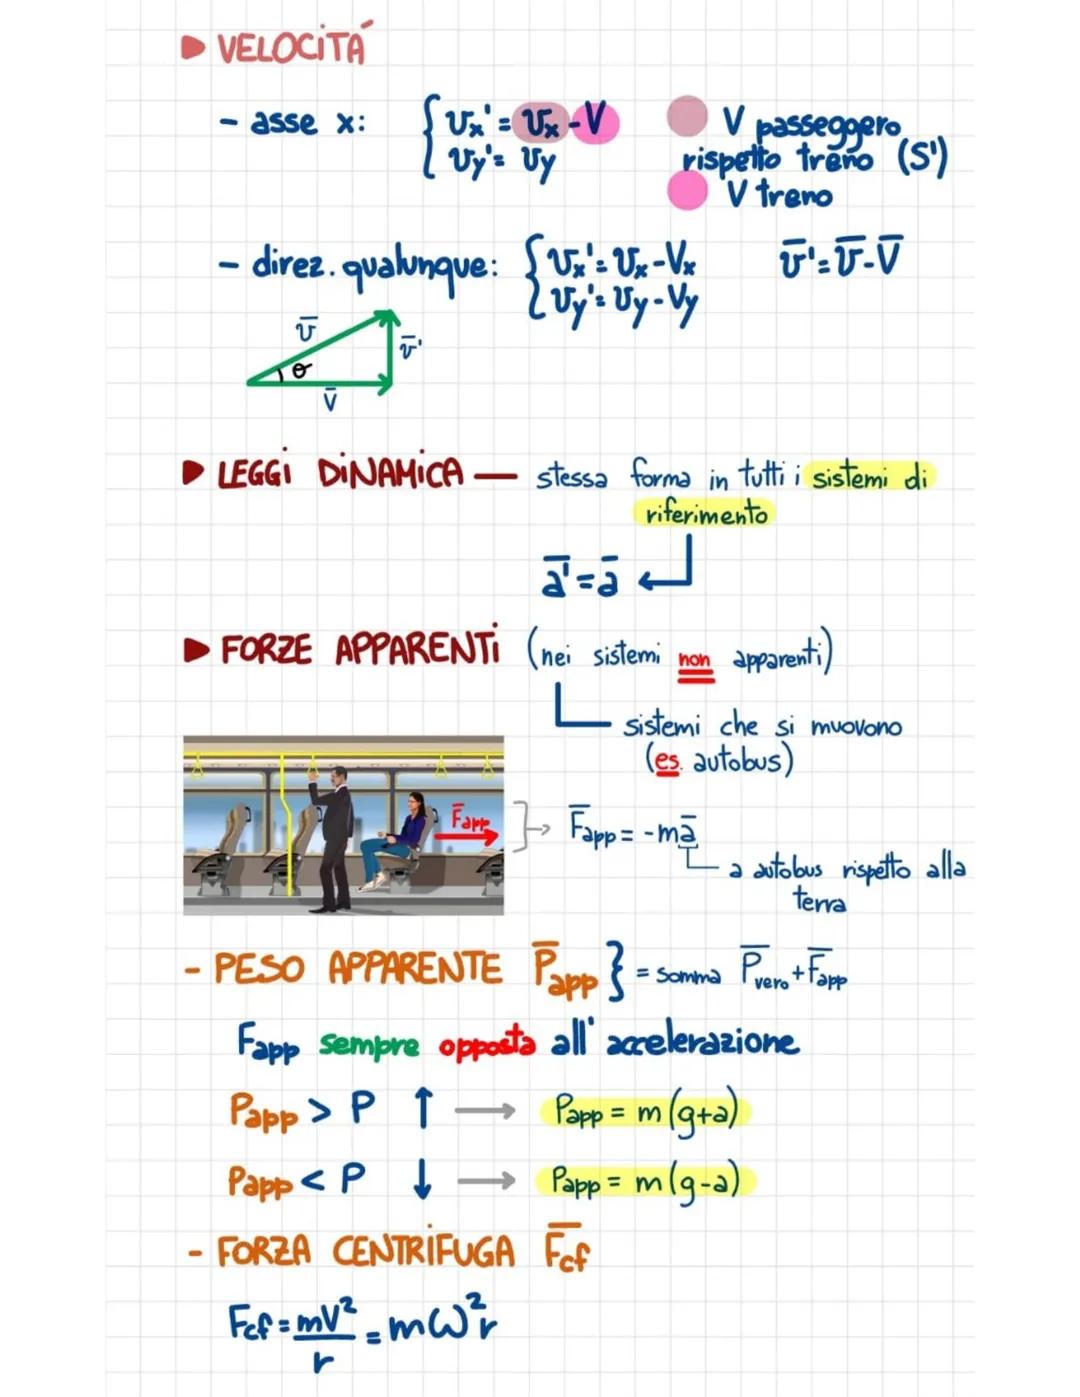 ▶ VELOCITÁ
- asse x: { vx' = vx - V
vy' = vy
V passeggero
rispetto treno (S')
V treno
- direz. qualunque: { vx' = vx - Vx
vy' = vy - Vy
v̅' = v̅ - V̅
v̅
v̅'
θ
V̅
▶ LEGGI DINAMICA — stessa forma in tutti i sistemi di
riferimento
a̅' = a̅
▶ FORZE APPARENTI (nei sistemi non apparenti)
sistemi che si muovono
(es. autobus)
F̅app
F̅app = -ma̅
a autobus rispetto alla
terra
- PESO APPARENTE P̅app } = somma P̅vero + F̅app
Fapp sempre opposta all' accelerazione
Papp > P ↑ → Papp = m(g+a)
Papp < P ↓ → Papp = m(g-a)
- FORZA CENTRIFUGA F̅cf
Fcf = mV²/r = mω²r